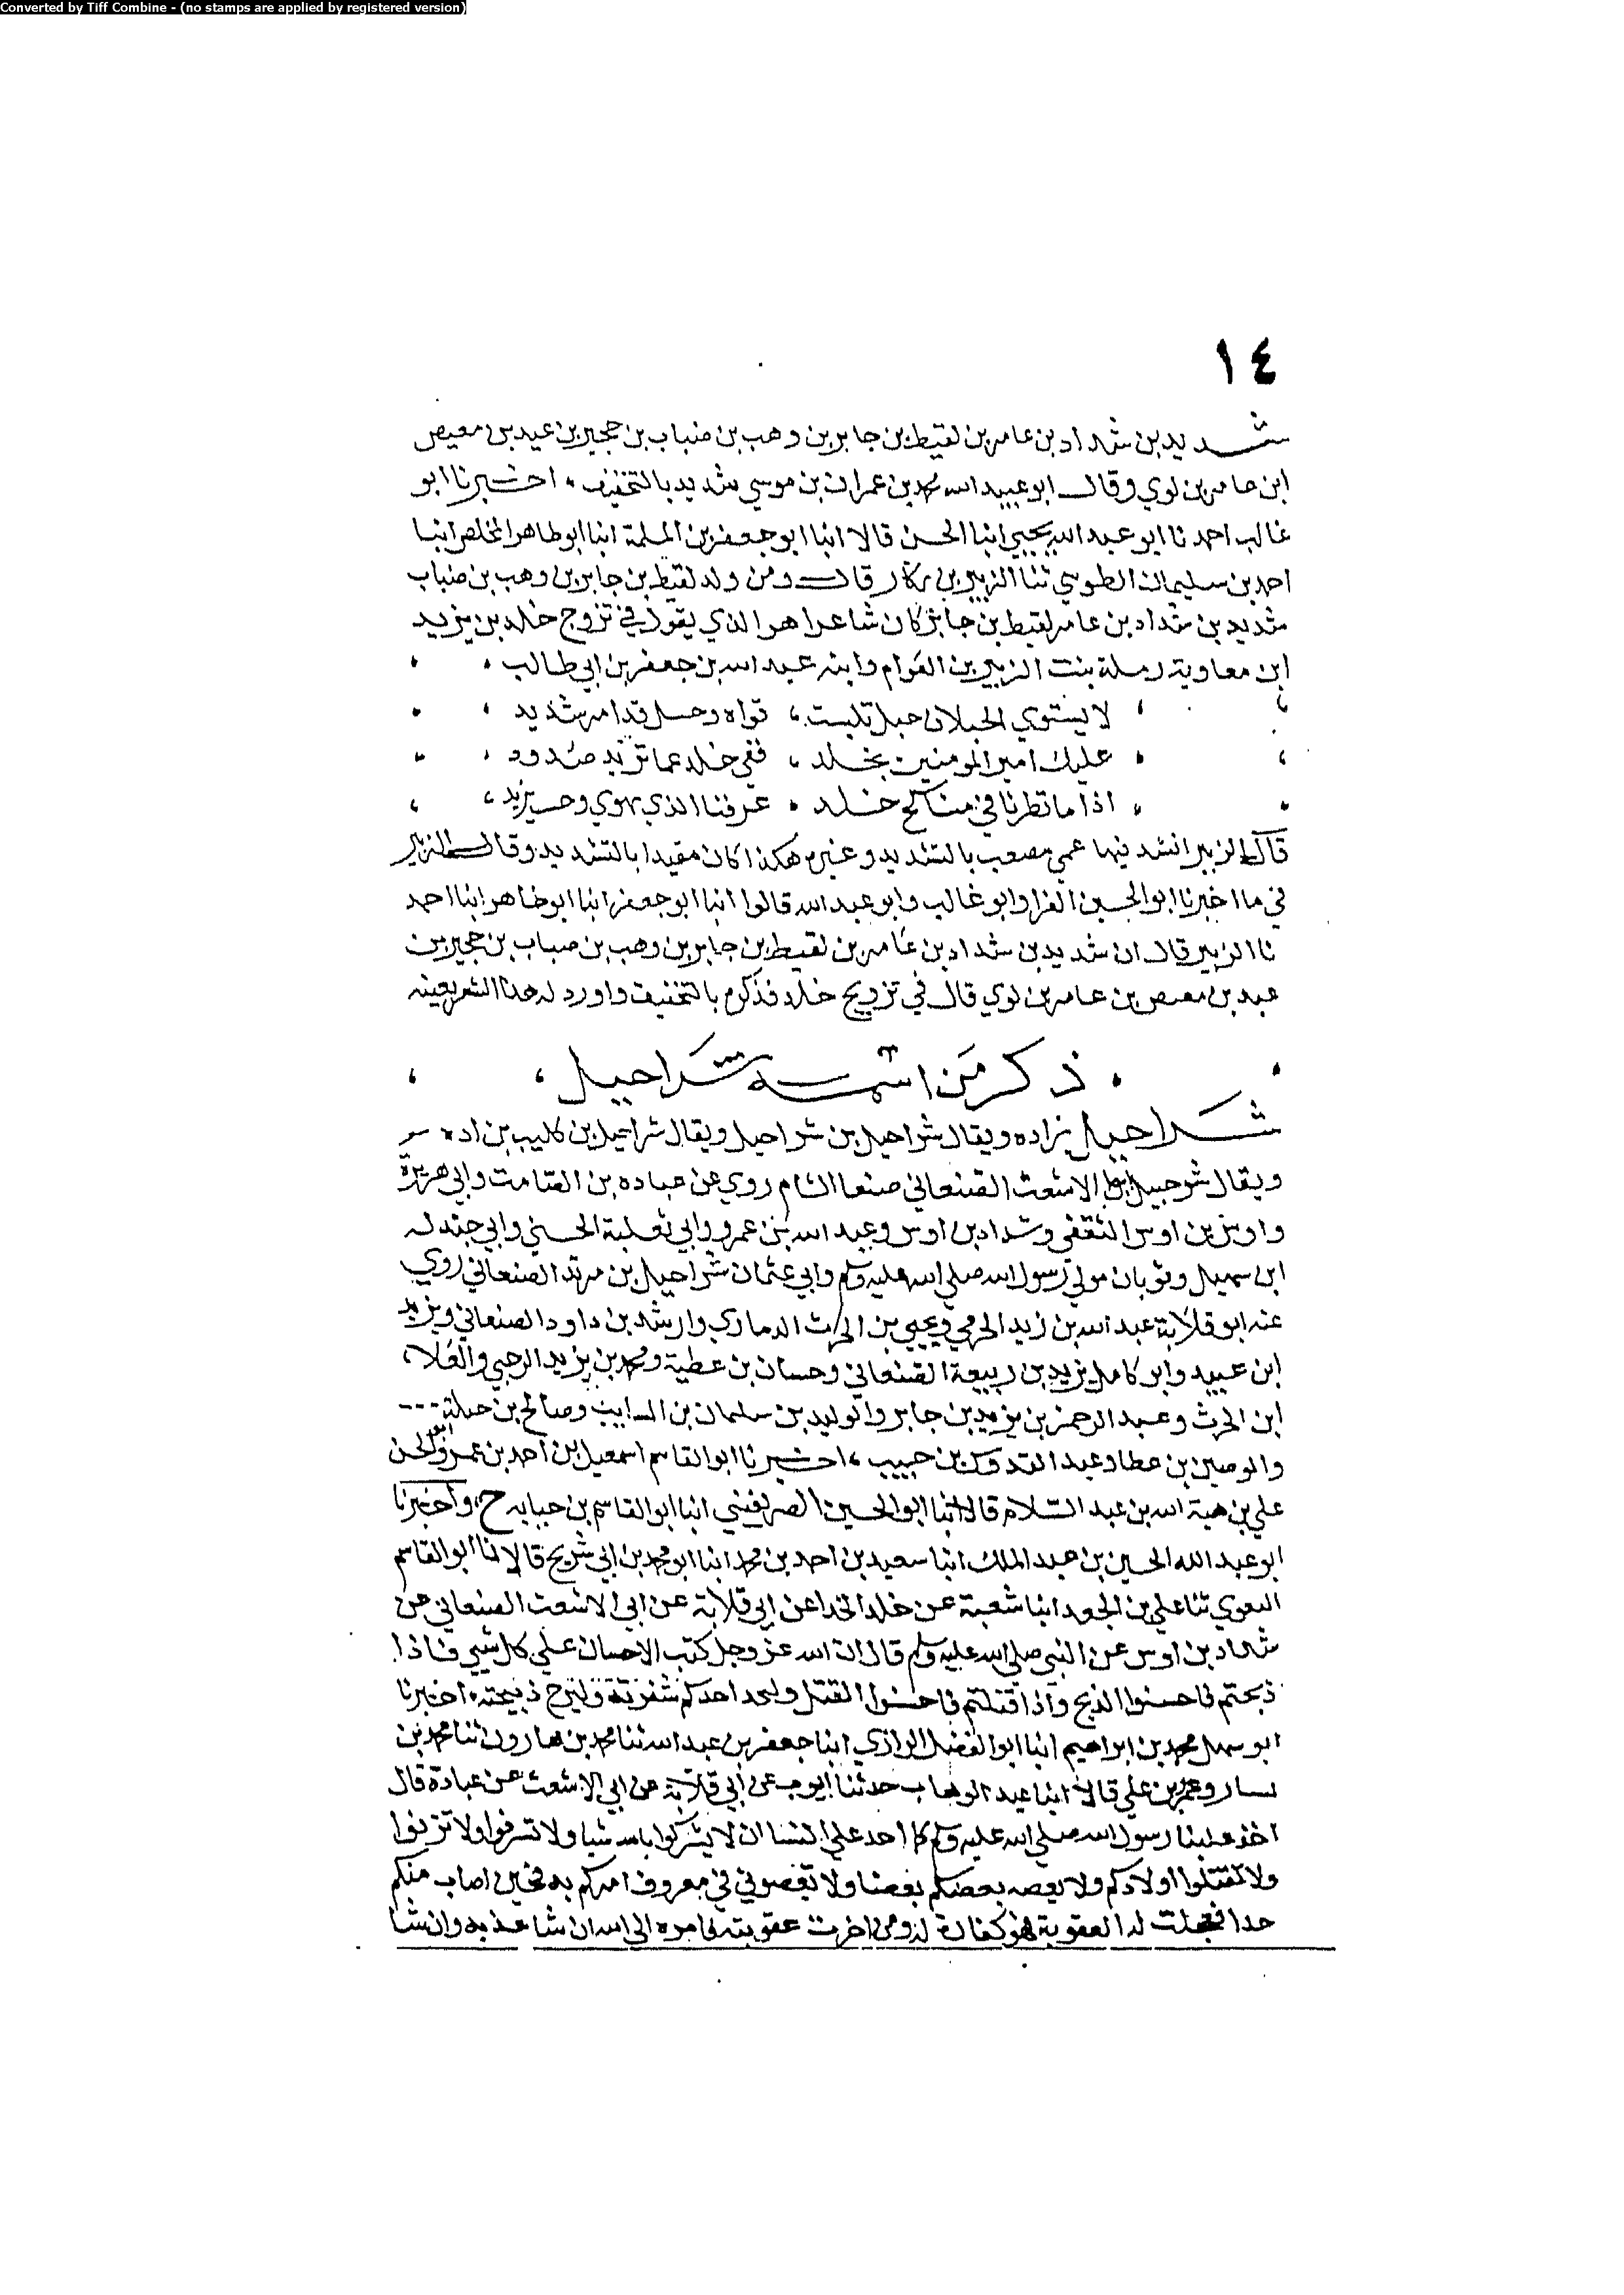 Converted by Tiff Combine - (no stamps are applied by registered version)
١٤
شديد بن شداد بن عامر بن لقيط بن جابر بن وهب بن ضباب بن حجير بن عبد بن معيص
ابن عامر بن لوي وقال ابو عبيد الله محمد بن عمران بن موسي شديد بالتخفيف اخبرنا ابو
غالب احمد نا ابو عبد الله يحيي ابنا الحسن قالا انبا ابو جعفر بن المسلمة انبا ابو طاهر المخلص انبا
احمد بن سليمان الطوسي ثنا الزبير بن بكار قال ومن ولد لقيط بن جابر بن وهب بن ضباب
شديد بن شداد بن عامر لقيط بن جابر كان شاعرا هو الذي يقول في تزوج خلد بن يزيد
ابن معاوية رملة بنت الزبير بن العوام وابنه عبد الله بن جعفر بن ابي طالب
لا يستوي الحبلان حبل تلبست قواه وحبل قد امر شديد
عليك امير المومنين بخلد ففي خلد عما تريد صدود
اذا ما نظرنا في مناكح خلد عرفنا الذي يهوي وحيث يريد
قال الزبير انشد نيها عمي مصعب بالتشديد وغيره هكذا كان مقيدا بالتشديد وقال الزبير
في ما اخبرنا ابو الحسين الفرا وابو غالب وابو عبد الله قالوا انبا ابو جعفر انبا ابو طاهر انبا احمد
نا الزبير قال ان شديد بن شداد بن عامر بن لقيط بن جابر بن وهب بن ضباب بن حجير بن
عبد بن معيص بن عامر بن لوي قال في تزويج خلد فذكره بالتخفيف واورد له هذا الشعر بعينه
ذكر من اسمه شراحيل
شراحيل بن اده ويقال شراحيل بن شراحيل ويقال شراحيل بن كليب بن اده
ويقال شرحبيل ابو الاشعث الصنعاني صنعا الشام روي عن عباده بن الصامت وابي هريرة
واوس بن اوس الثقفي وشداد بن اوس وعبد الله بن عمرو وابي ثعلبة الخشني وابي جندله
ابن سهيل وثوبان مولي رسول الله صلي الله عليه وسلم وابي عثمان شراحيل بن مرثد الصنعاني روي
عنه ابو قلابة عبد الله بن زيد الجرمي ويحيي بن الحرث الدماري وراشد بن داود الصنعاني ويزيد
ابن عبيد وابو كامل يزيد بن ربيعة الصنعاني وحسان بن عطية ومحمد بن يزيد الرحبي والعلاء
ابن الحرث وعبد الرحمن بن يزيد بن جابر والوليد بن سلمان بن السايب وصالح بن جبلة
والوضين بن عطا وعبد القدوس بن حبيب اخبرنا ابو القاسم اسمعيل بن احمد بن عمر وابو الحسن
علي بن هبة الله بن عبد السلام قالا انبا ابو الحسين الصريفيني انبا ابو القاسم بن حبابه ح واخبرنا
ابو عبد الله الحسين بن عبد الملك انبا سعيد بن احمد بن محمد انبا ابو محمد بن ابي شريح قالا انا ابو القاسم
البغوي ثنا علي بن الجعد ابنا شعبة عن خلد الحذا عن ابي قلابة عن ابي الاشعث الصنعاني عن
شداد بن اوس عن النبي صلي الله عليه وسلم قال ان الله عز وجل كتب الاحسان علي كل شيي فاذا
ذبحتم فاحسنوا الذبح واذا قتلتم فاحسنوا القتل وليحد احدكم شفرته وليرح ذبيحته اخبرنا
ابو سهل محمد بن ابراهيم انبا ابو الفضل الرازي ابنا جعفر بن عبد الله ثنا محمد بن هارون ثنا محمد بن
بسار وعمرو بن علي قالا انبا عبد الوهاب حدثنا ايوب عن ابي قلابة عن ابي الاشعث عن عبادة قال
اخذ علينا رسول الله صلي الله عليه وسلم كما احد علي النسا ان لا يشركوا بالله شيا ولا تسرقوا ولا تزنوا
ولا تقتلوا اولادكم ولا يعصه بعضكم بعضا ولا تعصوني في معروف امركم به فمن اصاب منكم
حدا فعجلت له العقوبة فهو كفارة له ومن اخرت عقوبته فامره الي الله ان شا عذبه وان شا